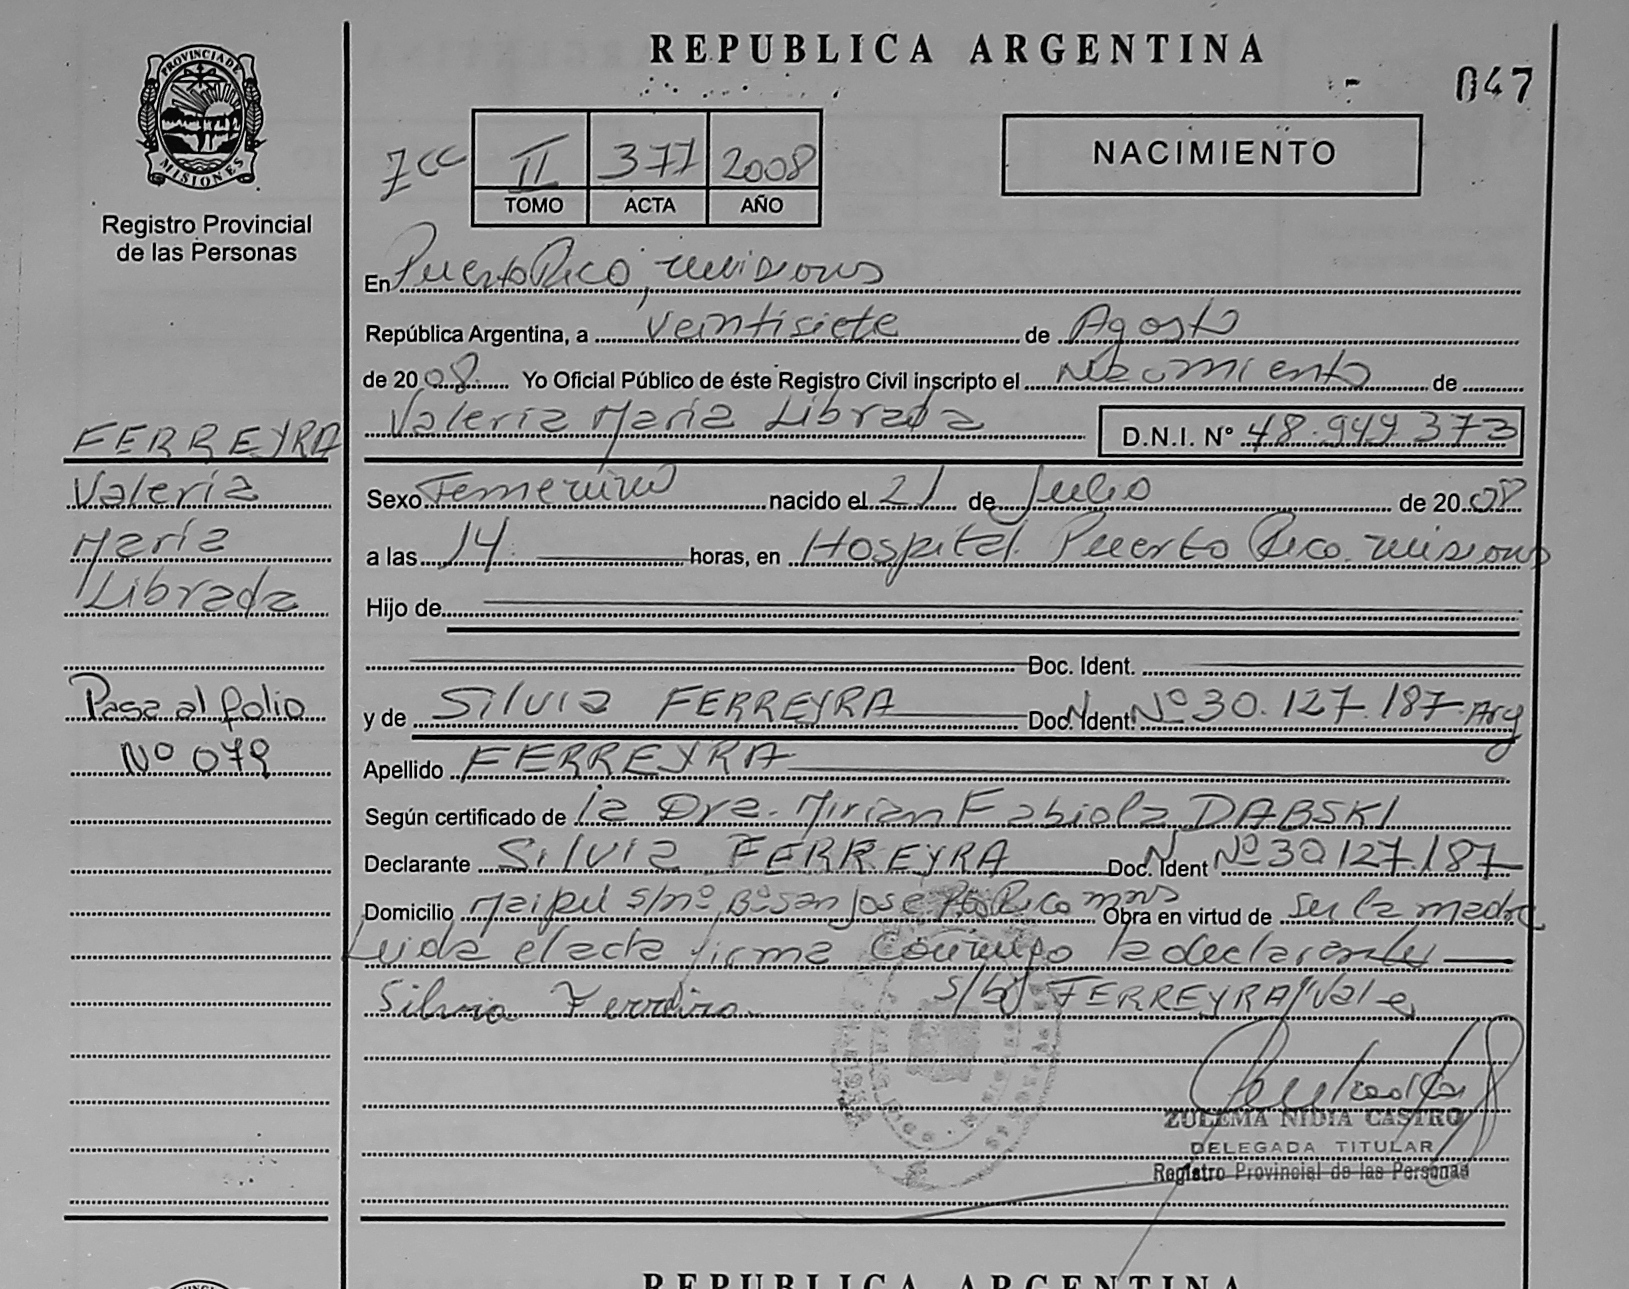 REPUBLICA ARGENTINA
047
PROVINCIA DE
MISIONES
Registro Provincial
de las Personas
7cc II 377 2008
TOMO ACTA AÑO
NACIMIENTO
En Puerto Rico, misiones
República Argentina, a veintisiete de Agosto
de 2008 Yo Oficial Público de éste Registro Civil inscripto el Nacimiento de
Valeria María Librada D.N.I. Nº 48.949.373
FERREYRA
Valeria
María
Librada
Sexo Femenino nacido el 21 de Julio de 2008
a las 14 horas, en Hospital Puerto Rico. misiones
Hijo de
Doc. Ident.
Pasa al folio
Nº 079
y de Silvia FERREYRA Doc. Ident. Nº 30.127.187. Arg
Apellido FERREYRA
Según certificado de la Dra. Mirian Fabiola DABSKI
Declarante Silvia FERREYRA Doc. Ident Nº 30127.187
Domicilio Maipú s/nº Bº San José Pto Rico mns Obra en virtud de ser la madre
Leida el acta firma conmigo la declarante
Silvia Ferreira. s/b FERREYRA/Vale
ZULEMA NIDIA CASTRO
DELEGADA TITULAR
Registro Provincial de las Personas
REPUBLICA ARGENTINA